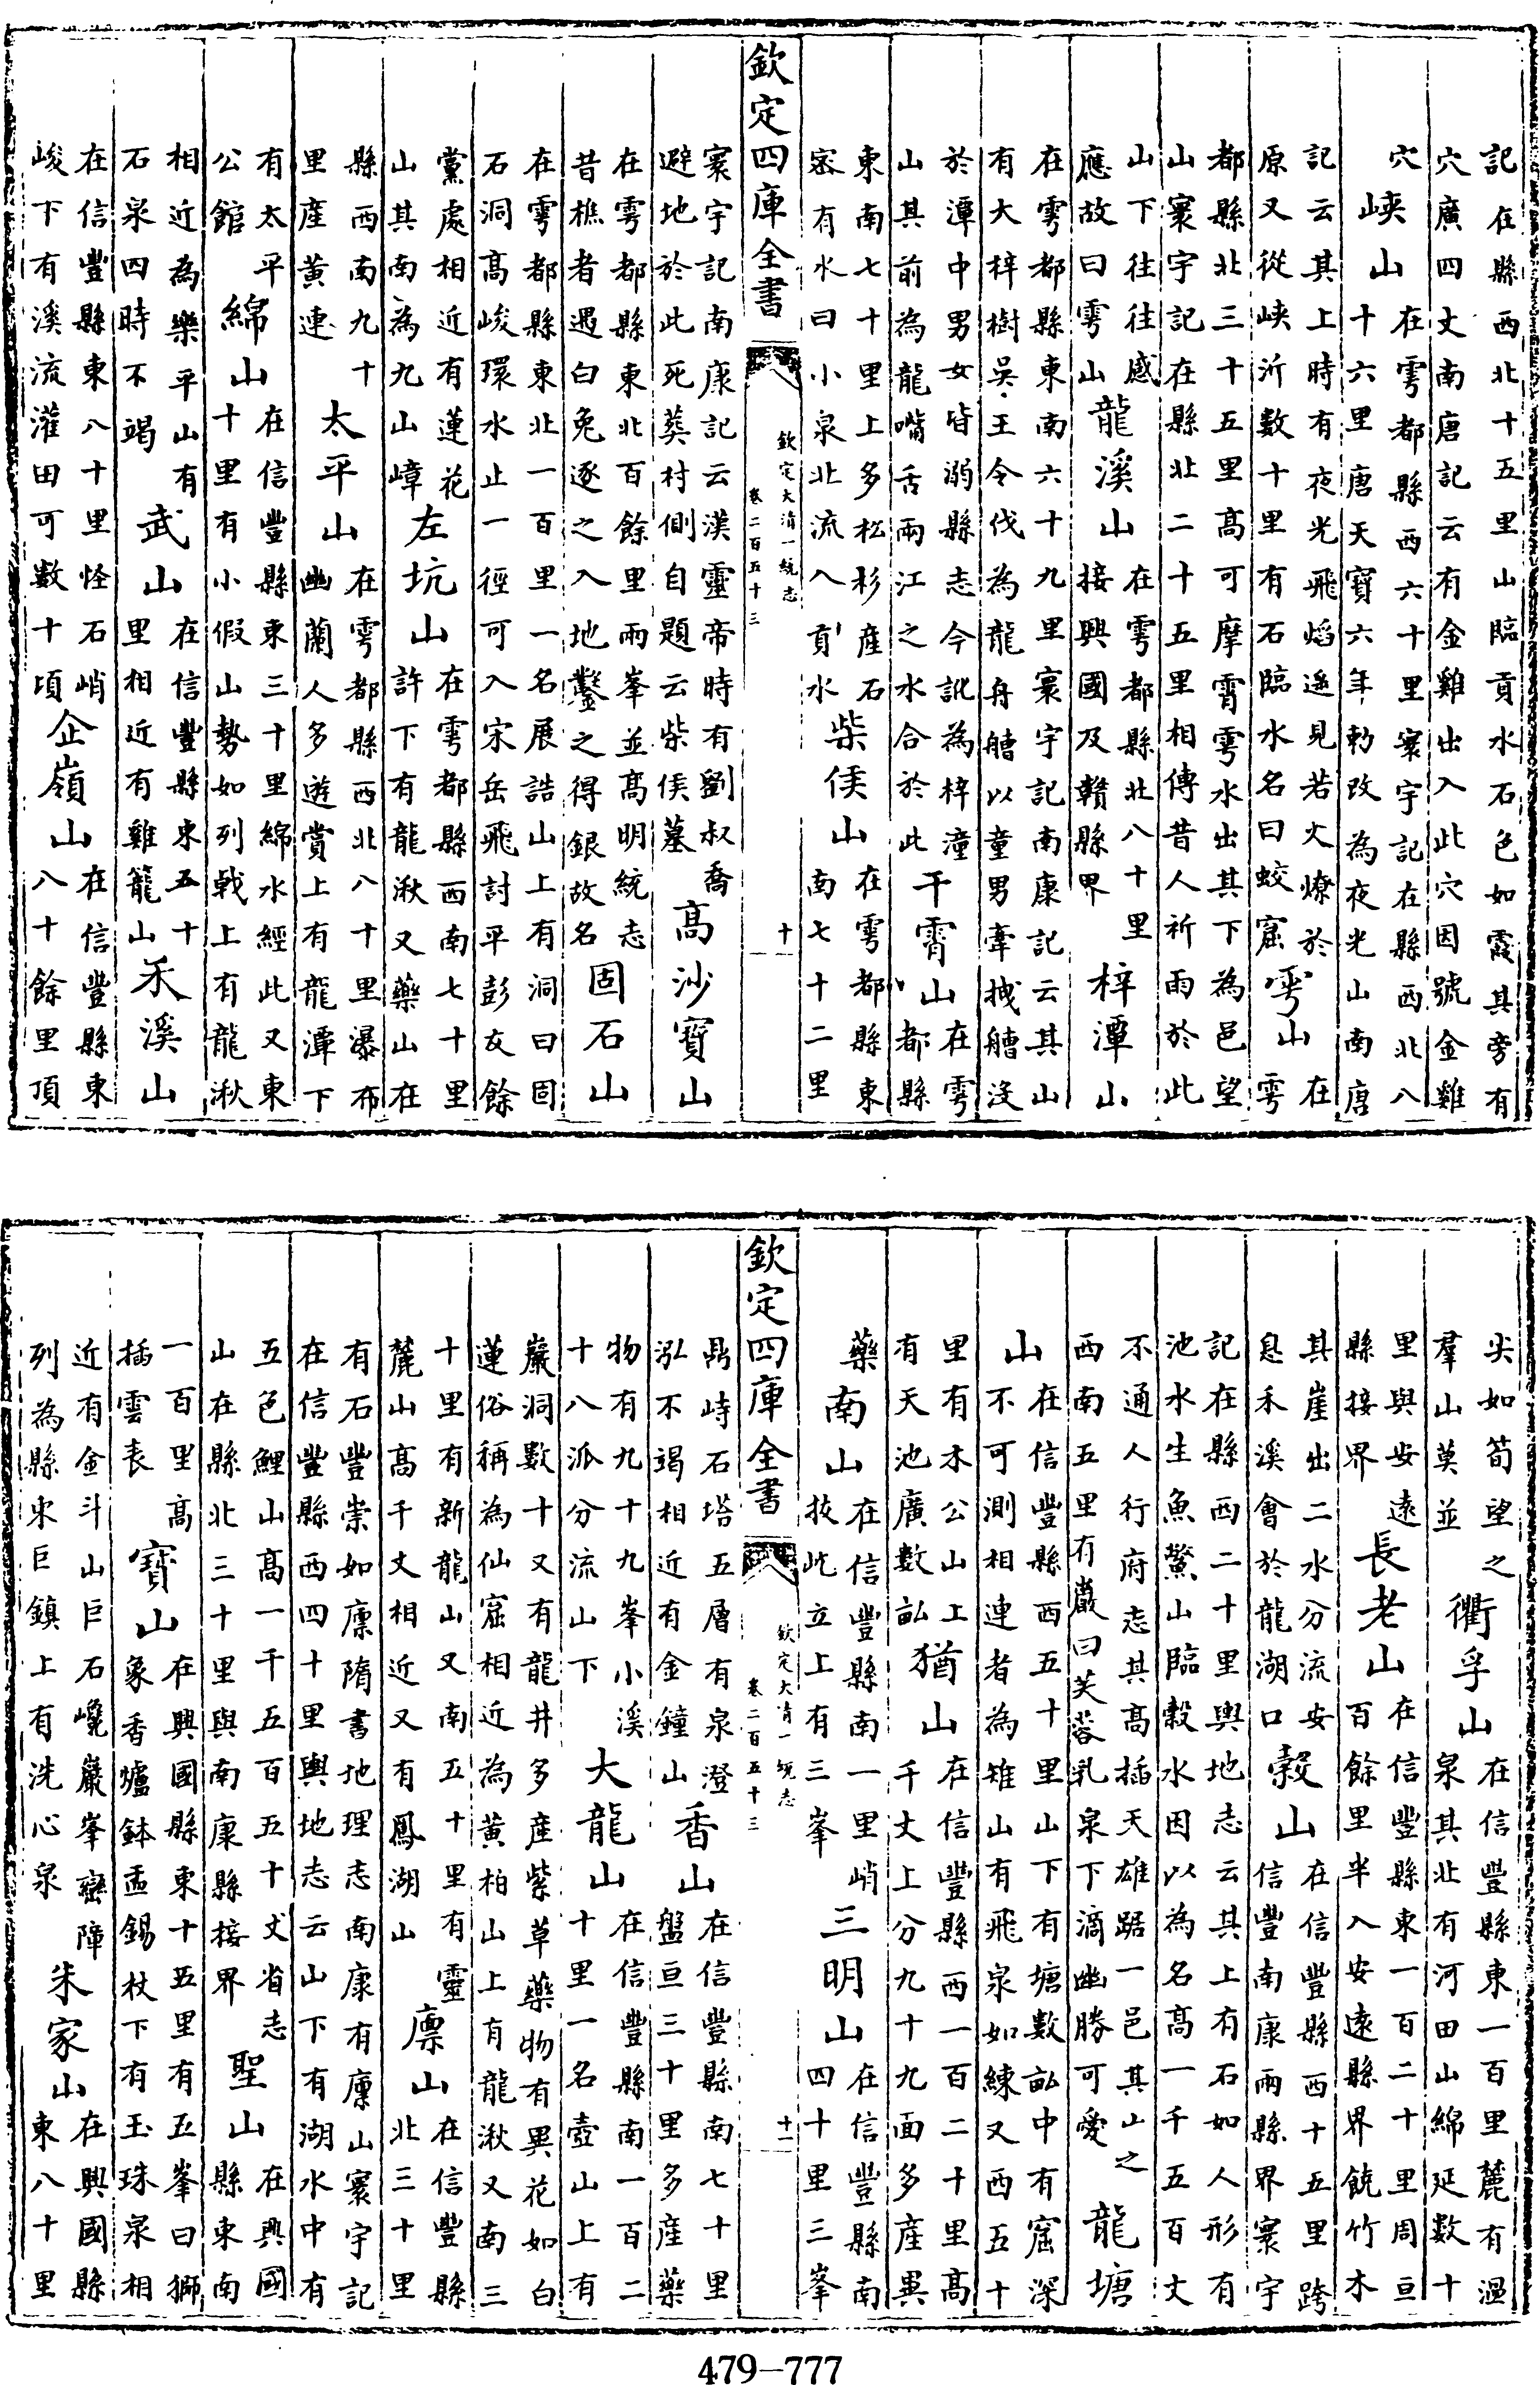 記在縣西北十五里山臨貢水石色如霞其旁有
穴廣四丈南唐記云有金雞出入此穴因號金雞
穴
峽山
在雩都縣西六十里寰宇記在縣西北八
十六里唐天寶六年勅改為夜光山南唐
記云其上時有夜光飛焰遥見若火燎於
原又從峽沂數十里有石臨水名曰蛟窟
雩山
在
雩
都縣北三十五里高可摩霄雩水出其下為邑望
山寰宇記在縣北二十五里相傳昔人祈雨於此
山下往往感
應故曰雩山
龍溪山
在雩都縣北八十里
接興國及贛縣界
梓潭山
在雩都縣東南六十九里寰宇記南康記云其山
有大梓樹吳王令伐為龍舟艚以童男牽拽艚沒
於潭中男女皆溺縣志今訛為梓潼
山其前為龍嘴舌兩江之水合於此
干霄山
在雩
都縣
東南七十里上多松杉產石
宻有水曰小泉北流入貢水
柴侯山
在雩都縣東
南七十二里
欽定四庫全書
欽定大清一統志
卷二百五十三
十
寰宇記南康記云漢靈帝時有劉叔喬
避地於此死葬村側自題云柴侯墓
高沙寶山
在雩都縣東北百餘里兩峯並高明統志
昔樵者遇白兔逐之入地鑿之得銀故名
固石山
在雩都縣東北一百里一名展誥山上有洞曰固
石洞高峻環水止一徑可入宋岳飛討平彭友餘
黨處相近有蓮花
山其南為九山嶂
左坑山
在雩都縣西南七十里
許下有龍湫又藥山在
縣西南九十
里產黄連
太平山
在雩都縣西北八十里瀑布
幽蘭人多遊賞上有龍潭下
有太平
公館
綿山
在信豐縣東三十里綿水經此又東
十里有小假山勢如列戟上有龍湫
相近為樂平山有
石泉四時不竭
武山
在信豐縣東五十
里相近有雞籠山
禾溪山
在信豐縣東八十里怪石峭
峻下有溪流灌田可數十頃
企嶺山
在信豐縣東
八十餘里頂
尖如筍望之
羣山莫並
衢孚山
在信豐縣東一百里麓有温
泉其北有河田山綿延數十
里與安遠
縣接界
長老山
在信豐縣東一百二十里周亘
百餘里半入安遠縣界饒竹木
其崖出二水分流安
息禾溪會於龍湖口
穀山
在信豐縣西十五里跨
信豐南康兩縣界寰宇
記在縣西二十里輿地志云其上有石如人形有
池水生魚鱉山臨穀水因以為名高一千五百丈
不通人行府志其高插天雄踞一邑其山之
西南五里有巖曰芙蓉乳泉下滴幽勝可愛
龍塘
山
在信豐縣西五十里山下有塘數畝中有窟深
不可測相連者為雉山有飛泉如練又西五十
里有木公山上
有天池廣數畝
猶山
在信豐縣西一百二十里高
千丈上分九十九面多產異
藥
南山
在信豐縣南一里峭
拔此立上有三峯
三明山
在信豐縣南
四十里三峯
欽定四庫全書
欽定大清一統志
卷二百五十三
十一
鼎峙石塔五層有泉澄
泓不竭相近有金鐘山
香山
在信豐縣南七十里
盤亘三十里多產藥
物有九十九峯小溪
十八派分流山下
大龍山
在信豐縣南一百二
十里一名壺山上有
巖洞數十又有龍井多產紫草藥物有異花如白
蓮俗稱為仙窟相近為黄柏山上有龍湫又南三
十里有新龍山又南五十里有靈
麓山高千丈相近又有鳳湖山
廩山
在信豐縣
北三十里
有石豐崇如廩隋書地理志南康有廩山寰宇記
在信豐縣西四十里輿地志云山下有湖水中有
五色鯉山高一千五百五十丈省志
山在縣北三十里與南康縣接界
聖山
在興國
縣東南
一百里高
插雲表
寶山
在興國縣東十五里有五峯曰獅
象香爐鉢盂錫杖下有玉珠泉相
近有金斗山巨石巉巖峯巒障
列為縣東巨鎮上有洗心泉
朱家山
在興國縣
東八十里
479-777